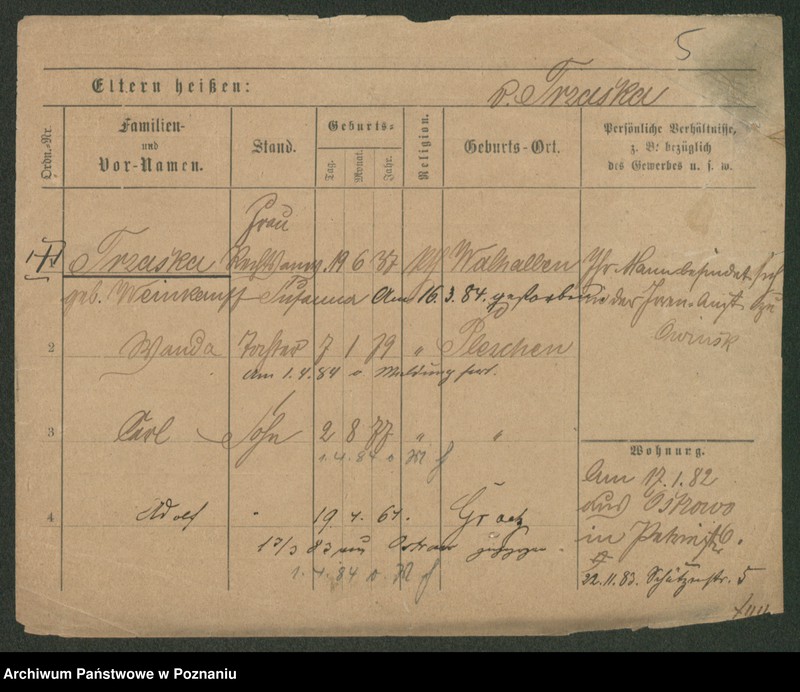 5
Eltern heißen:
v. Trzaska
Ordn.-Nr.
Familien-
und
Vor-Namen.
Stand.
Geburts-
Tag.
Monat.
Jahr.
Religion.
Geburts-Ort.
Persönliche Verhältnisse,
z. B. bezüglich
des Gewerbes u. s. w.
Frau
Trzaska 19 6 37 Walhalben Ihr Mann befindet sich
geb. Susanna Am 16.3.84. gestorben in der Irren-Anst. zu
Owinsk
2 Wanda Tochter 7 1 79 " Pleschen
Am 1.4.84 o Meldung fort.
3 Carl Sohn 2 8 77 " "
1.4.84 o M f
Wohnung.
Am 17.1.82
aus Ostrowo
in 6.
22.11.83. Schützenstr. 5
4 Adolf " 19 4. 61. Graetz
13/3 83 zugezogen.
1.4.84 o M f
Archiwum Państwowe w Poznaniu